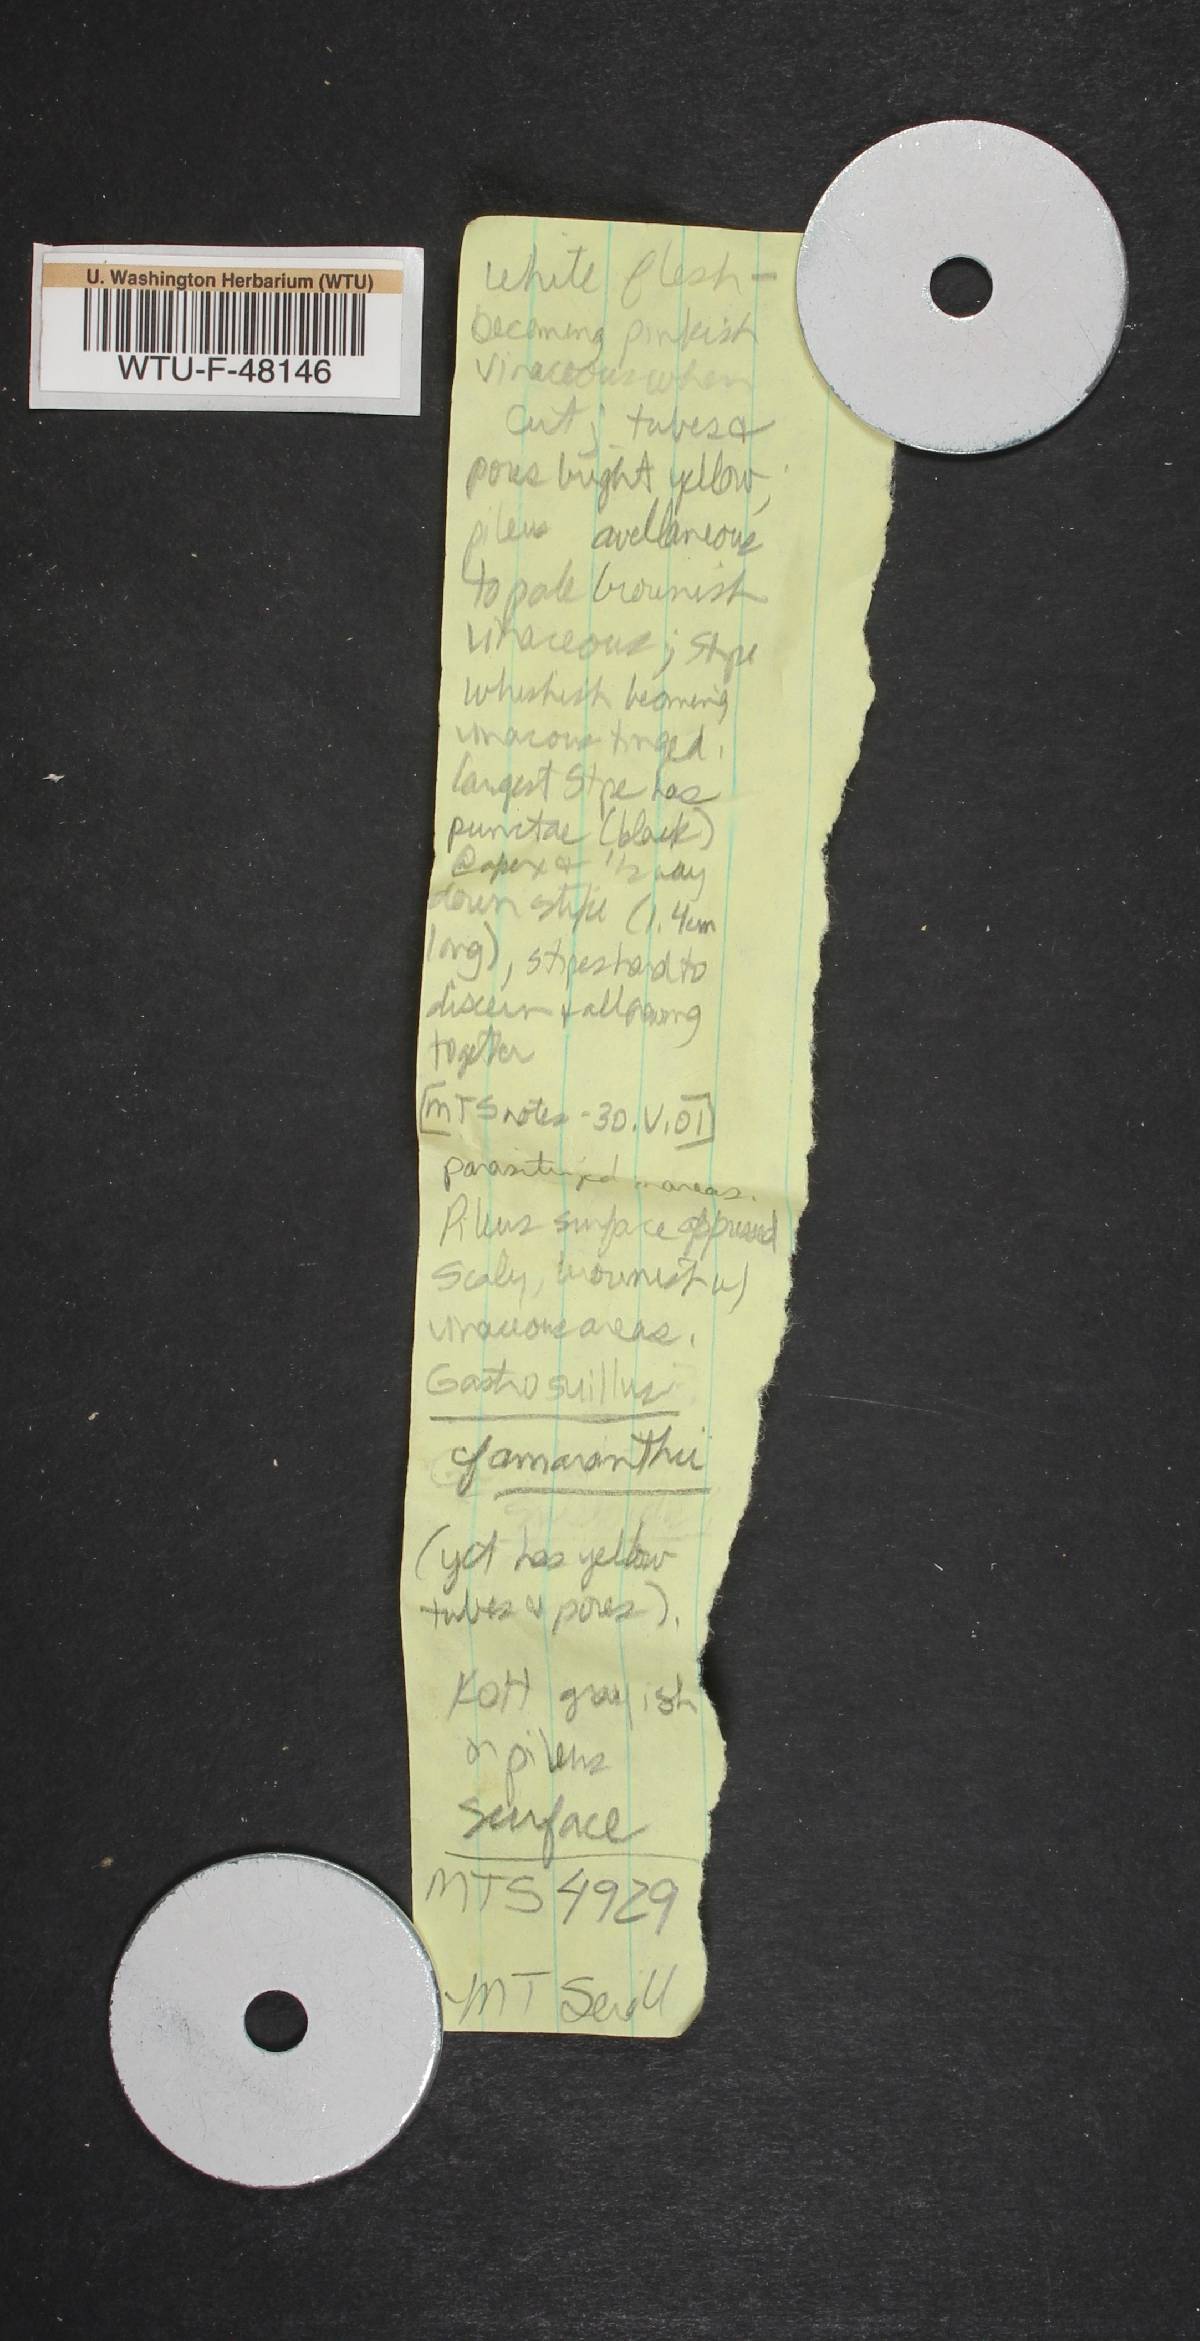 U. Washington Herbarium (WTU)
WTU-F-48146
white flesh -
becoming pinkish
vinaceous when
cut; tubes &
pores bright yellow;
pileus avellaneous
to pale brownish
vinaceous; stipe
whitish becoming
vinaceous tinged.
largest stipe has
punctae (black)
@ apex & 1/2 way
down stipe (1.4cm
long), stipes hard to
discern & all growing
together
[MTS notes - 30.V.01]
parasitized in areas.
Pileus surface appressed
scaly, brownish w/
vinaceous areas.
Gastrosuillus
cf amaranthii
(yet has yellow
tubes & pores).
KOH grayish
on pileus
surface
MTS 4929
-MT Seidl